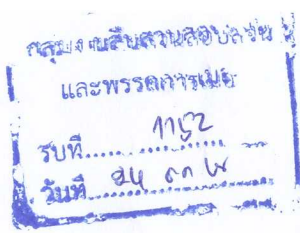 กลุ่มงานสืบสวนสอบสวน
และพรรคการเมือง
รับที่ 1152
วันที่ 24